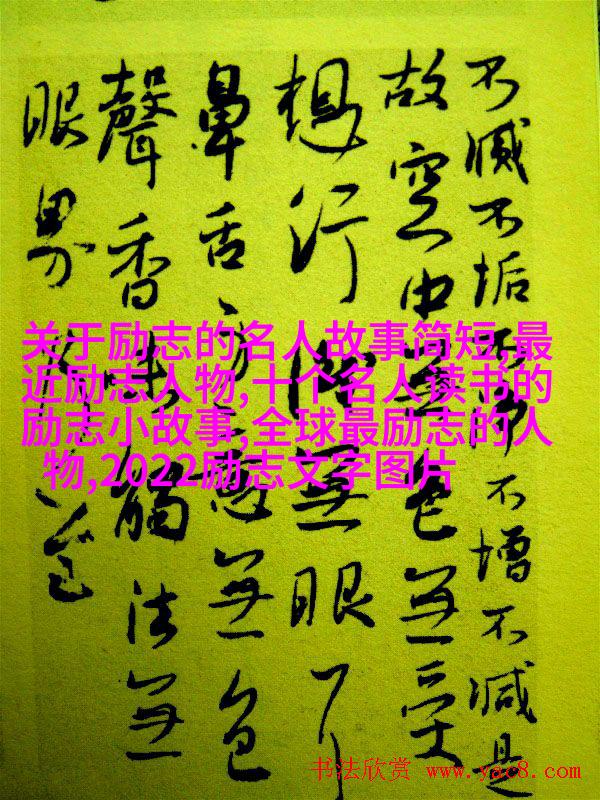 不滅不垢不淨不增不減是
故空中無色無受
想行識無眼耳
鼻舌身意無色
聲香味觸法無
眼界
关于励志的名人故事简短,最
近励志人物,十个名人读书的
励志小故事,全球最励志的人
物,2022励志文字图片
书法欣赏 www.yac8.com